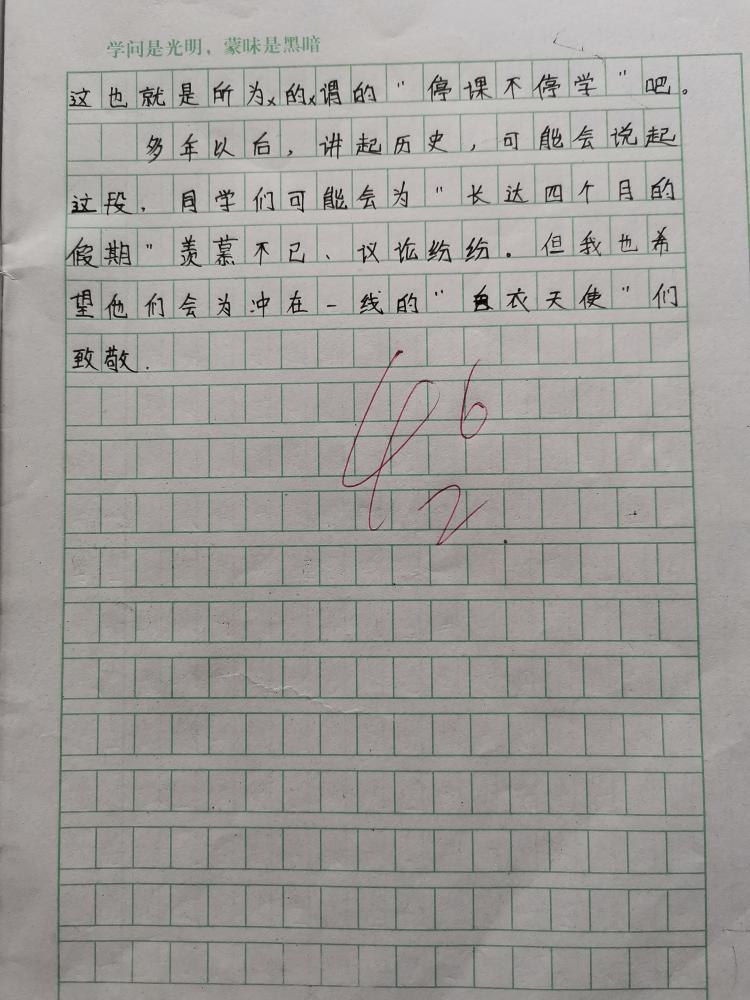 学问是光明，蒙昧是黑暗
这也就是所为x的x谓的“停课不停学”吧。
多年以后，讲起历史，可能会说起
这段，同学们可能会为“长达四个月的
假期”羡慕不已、议论纷纷。但我也希
望他们会为冲在一线的“白衣天使”们
致敬.
46
2